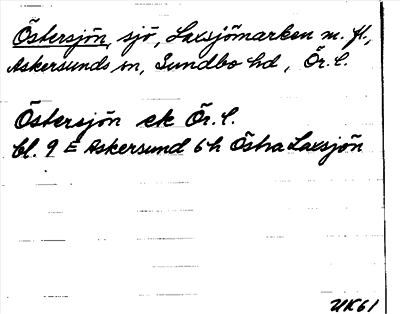 Östersjön, sjö, Laxsjömarken m. fl.,
Askersunds sn, Sundbo hd, Ör. l.
Östersjön ek Ör. l.
bl. 9 E Askersund 6 h Östra Laxsjön
UK61